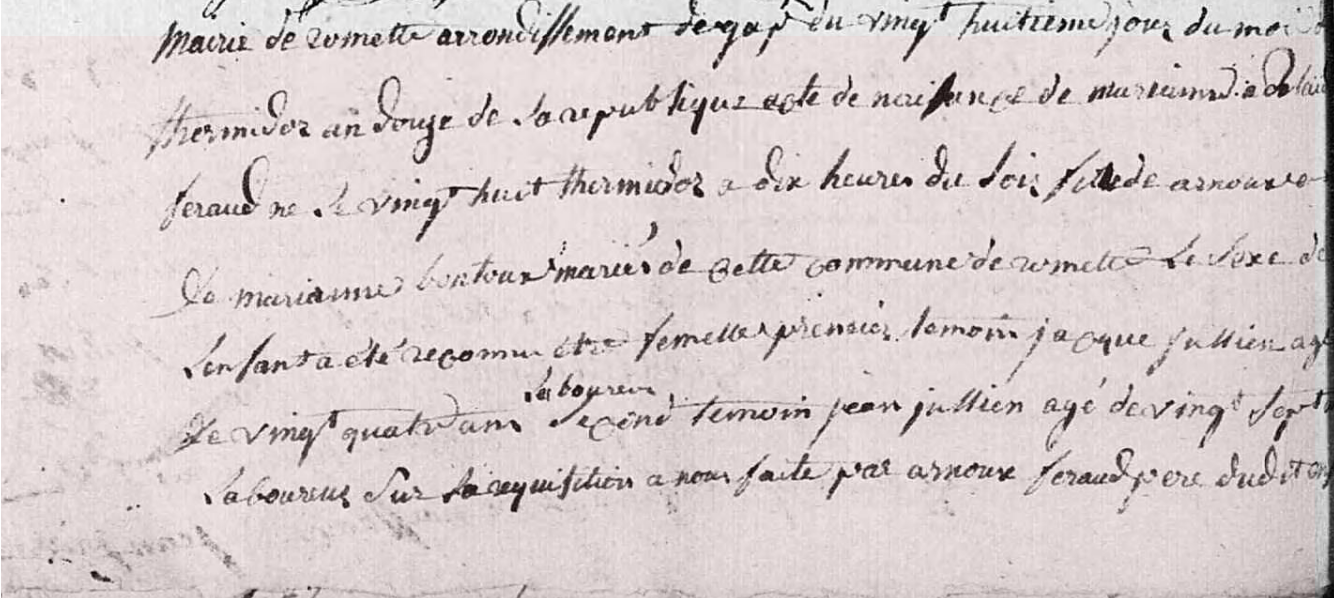 Mairie de romette arrondissement de gap du vingt huitieme jour du moi
thermidor an douze de la republique acte de naissance de marianne adelaid
feraud ne le vingt huit thermidor a dix heures du soir fille de arnoux
De marianne bontoux mariés de cette commune de romette Le sexe de
Lenfant a été reconnu etre femelle premier temoin jacque jullien agé
laboureur
De vingt quatre ans second temoin jean jullien agé de vingt sept
Laboureur Sur La requisition a nous faite par arnoux feraud pere dudit